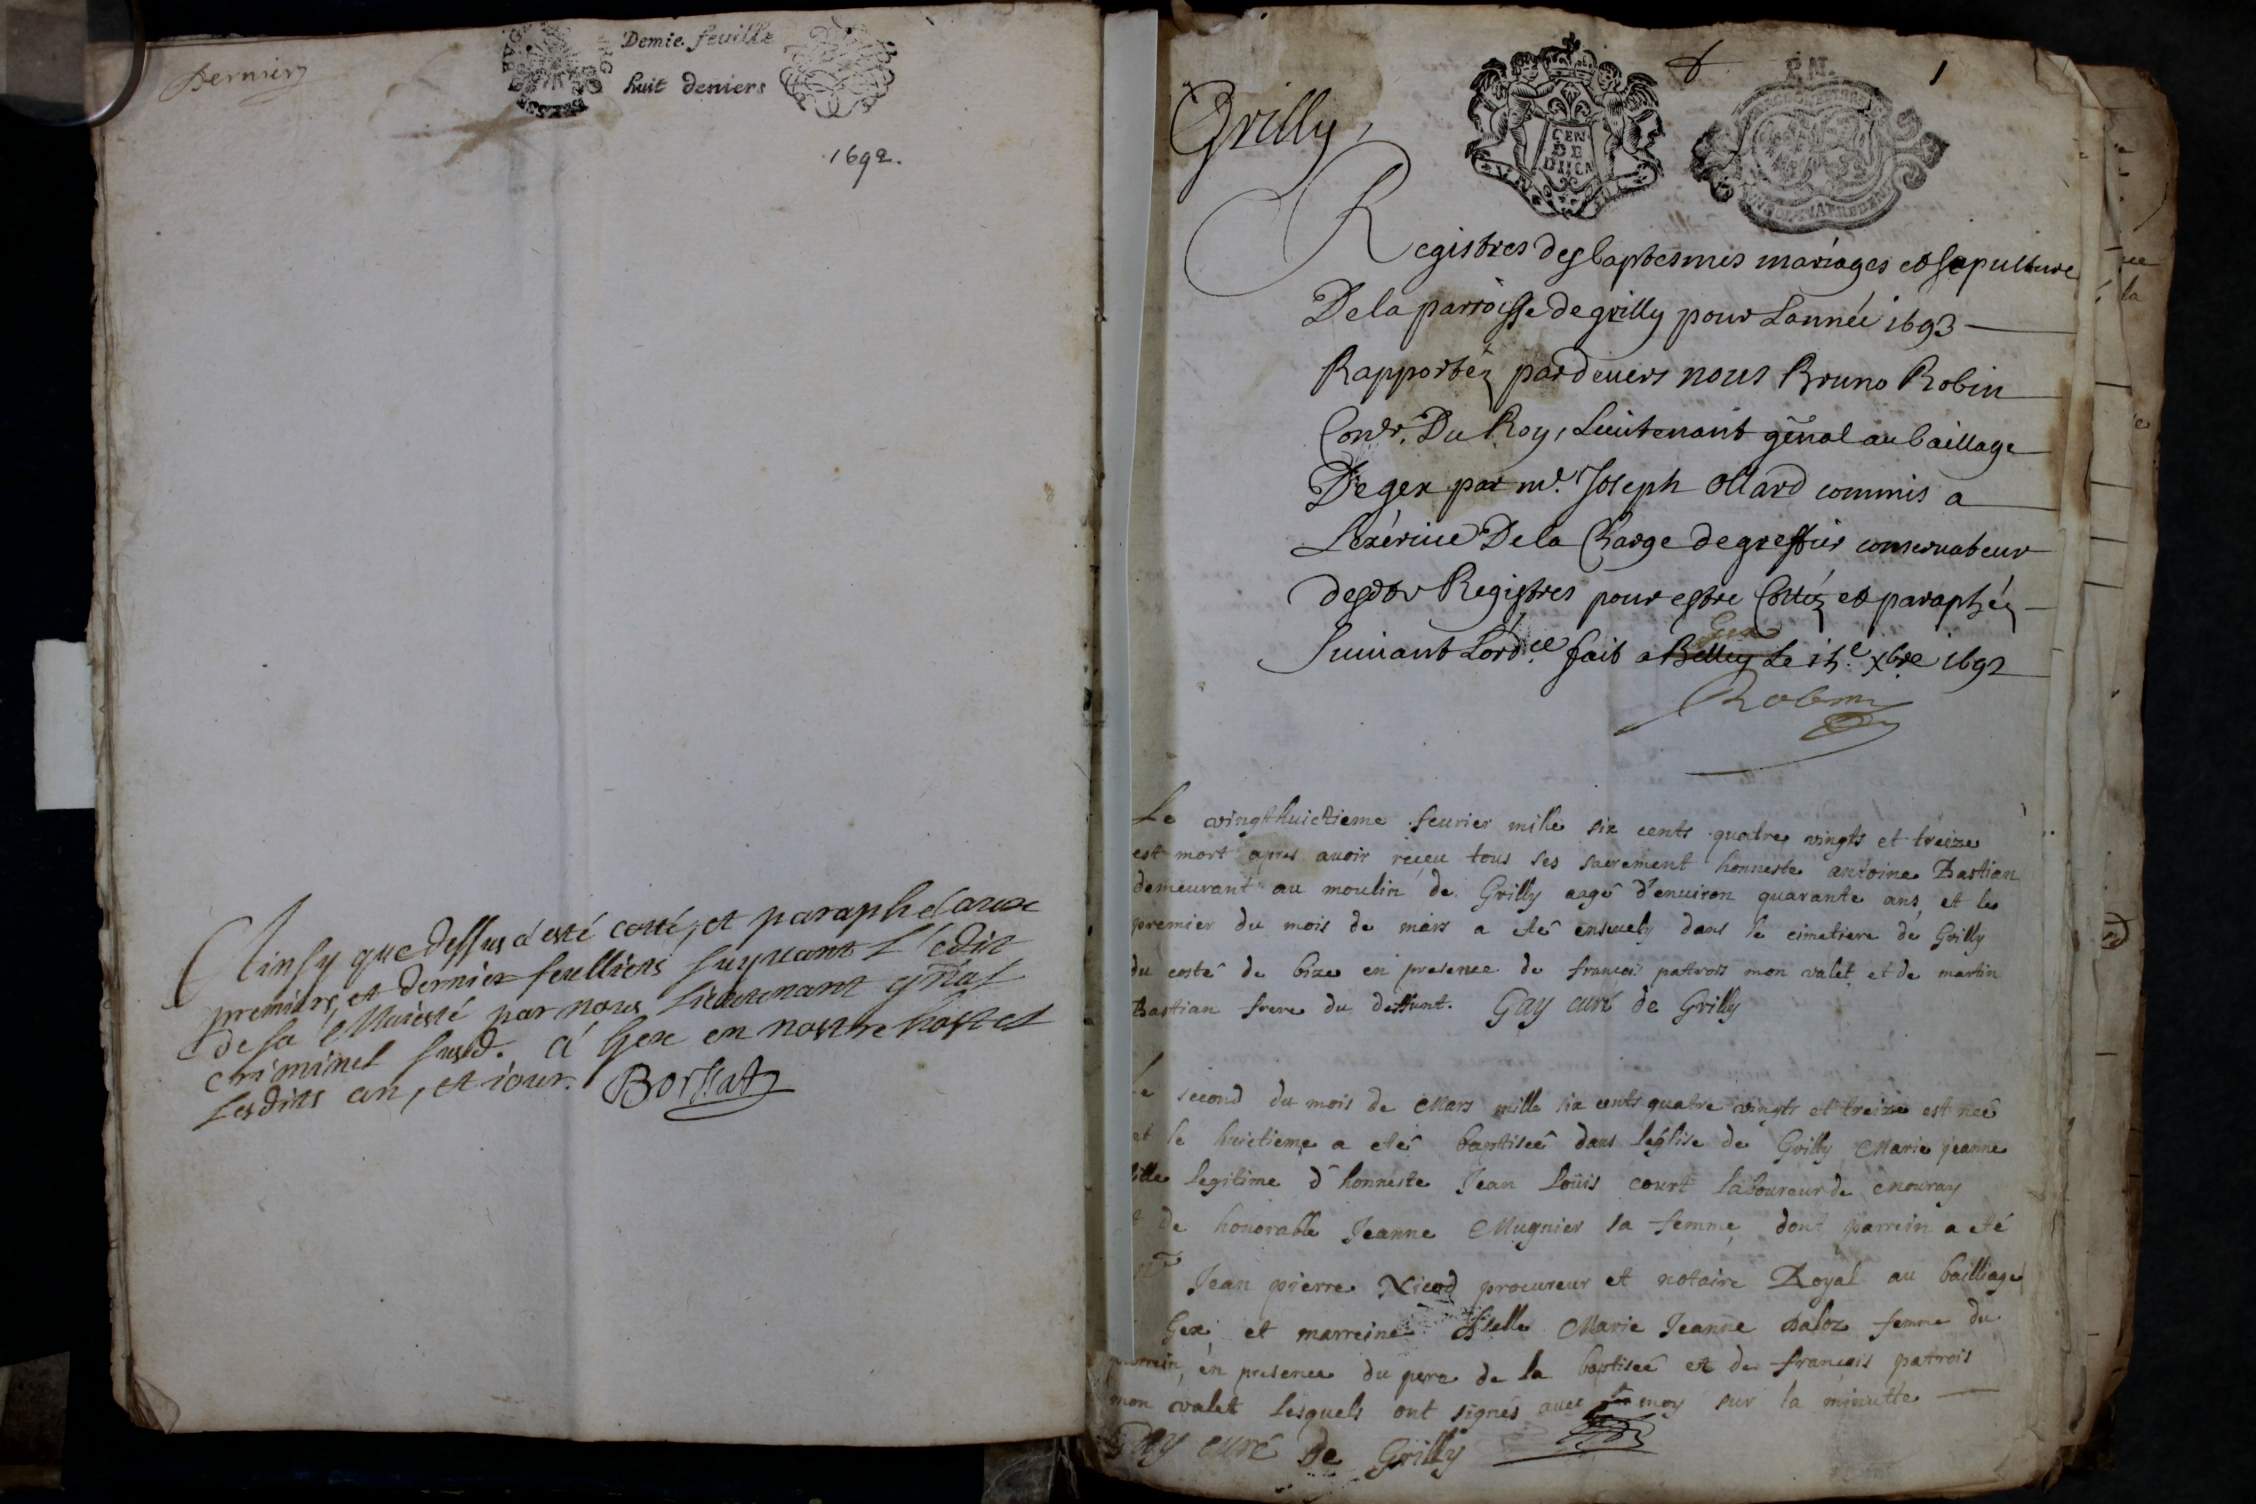 Dernier
Demie feuille
huit deniers
1692.
Ainsy que dessus a esté cotté, et paraphé aux
premiers, et dernier feulliets suyuant l'edit
de sa Maiesté par nous Lieutenant gñal
criminel susd. à Gex en nostre hostel
lesdits an, et iour. Borssat
Grilly,
1
GEN
DE
Registres des baptesmes mariages et sepulture
De la parroisse de grilly pour Lannée 1693
Rapportéz pardeuers nous Bruno Robin
Coner. Du Roy, Lieutenant gñal au baillage
De gex par me. Joseph ollard commis a
Lexércice De la Charge de greffier conseruateur
desdts Registres pour estre Cottéz et paraphéz
Suiuant Lordce fait a Belley Gex Le 15e. xbre 1692
Robin
Le vingthuictieme feurier mille six cents quatre vingts et treize
est mort apres auoir reçeu tous ses sacrement honneste antoine Bastian
demeurant au moulin de Grilly aagé d'enuiron quarante ans, et le
premier du mois de mars a eté enseuely dans le cimetiere de Grilly
du costé de bize en presence de francois patrois mon valet et de martin
Bastian frere du deffunt. Gay curé de Grilly
Le second du mois de Mars mille six cents quatre vingts et treize est née
et le huictieme a eté baptisée dans leglise de Grilly Marie jeanne
fille legitime d'honneste Jean Loüis court laboureur de
de honorable Jeanne Mugnier sa femme, dont parrein a eté
Jean pierre Nicod procureur et notaire Royal au bailliage
Gex, et marreine dslle Marie Jeanne Daloz femme du
parrein, en presence du pere de la baptisée et de francois patrois
mon valet lesquels ont signés auec moy sur la minutte
Gay curé de Grilly